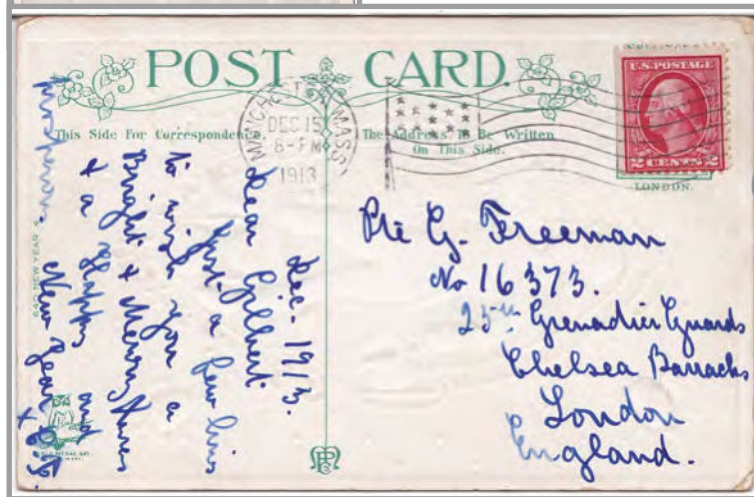 POST CARD.
This Side For Correspondence.
The Address To Be Written
On This Side.
WINCHESTER, MASS.
DEC 15
8-PM
1913
U.S. POSTAGE
2 CENTS 2
LONDON.
Dec. 1913.
Dear Gilbert
Just a few lines
to wish you a
Bright & Merry Xmas
& a Happy and
prosperous New Year
Pte G. Freeman
No 16373.
25th Grenadier Guards
Chelsea Barracks
London
England.
640 NEW YEAR